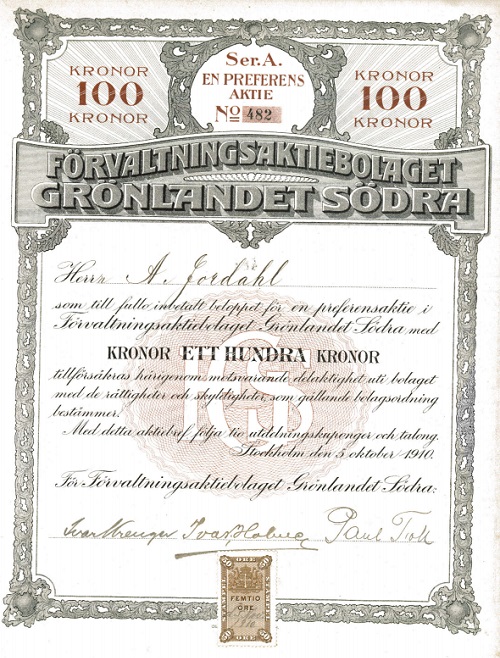 Ser. A.
EN PREFERENS
AKTIE
No 482
KRONOR
100
KRONOR
KRONOR
100
KRONOR
FÖRVALTNINGSAKTIEBOLAGET
GRÖNLANDET SÖDRA
Herrn A. Fordahl
som till fullo inbetalt beloppet för en preferensaktie i
Förvaltningsaktiebolaget Grönlandet Södra med
KRONOR ETT HUNDRA KRONOR
tillförsäkras härigenom motsvarande delaktighet uti bolaget
med de rättigheter och skyldigheter, som gällande bolagsordning
bestämmer.
Med detta aktiebref följa tio utdelningskuponger och talong.
Stockholm den 5 oktober 1910.
För Förvaltningsaktiebolaget Grönlandet Södra:
Ivar Kreuger Ivar Holmer Paul Toll
50 ÖRE 50
FEMTIO
ÖRE
1910
50 ÖRE 50